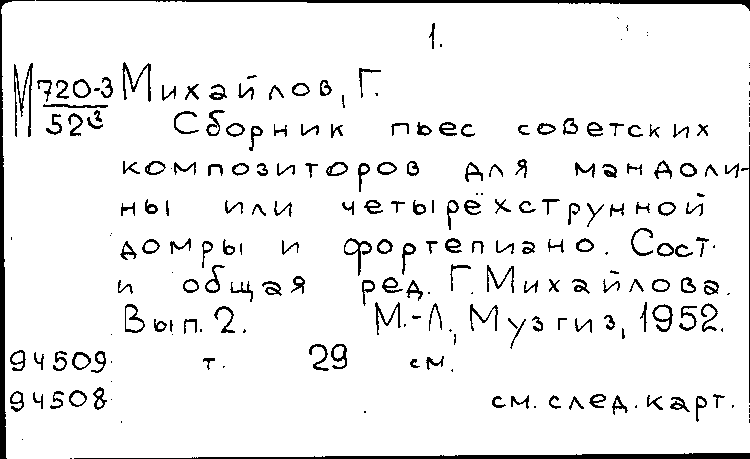 1.
М 720-3 Михайлов, Г.
52з Сборник пьес советских
композиторов для мандоли-
ны или четырёхструнной
домры и фортепиано. Сост.
и общая ред. Г. Михайлова.
Вып. 2. М.-Л., Музгиз, 1952.
94509 т. 29 см.
94508 см. след. карт.